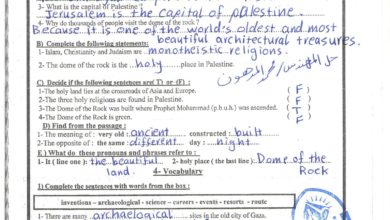 3- What is the capital of Palestine ?
Jerusalem is the capital of palestine.
4- Why do thousands of people visit the dome of the rock ?
Because it is one of the world's oldest and most
beautiful architectural treasures.
B) Complete the following statements:
1- Islam, Christianity and Judaism are monotheistic religions.
2- The dome of the rock is the holy place in Palestine.
C) Decide if the following sentences are( T) or (F) :
1-The holy land lies at the crossroads of Asia and Europe. ( F )
2-The three holy religions are found in Palestine. ( T )
3-The Dome of the Rock was built where Prophet Mohammad (p.b.u.h) was ascended. ( T )
4-The Dome of the Rock is green. ( F )
D) Find from the passage :
1-The meaning of : very old : ancient constructed : built
2-The opposite of : the same : different day : night
E ) What do these pronouns and phrases refer to :
1- It ( line one ) the beautiful land. 2- holy place ( the last line ): Dome of the Rock
4- Vocabulary
1) Complete the sentences with words from the box :
inventions – archaeological - science – careers - events - resorts - route
1-There are many archaelogical sites in the old city of Gaza.